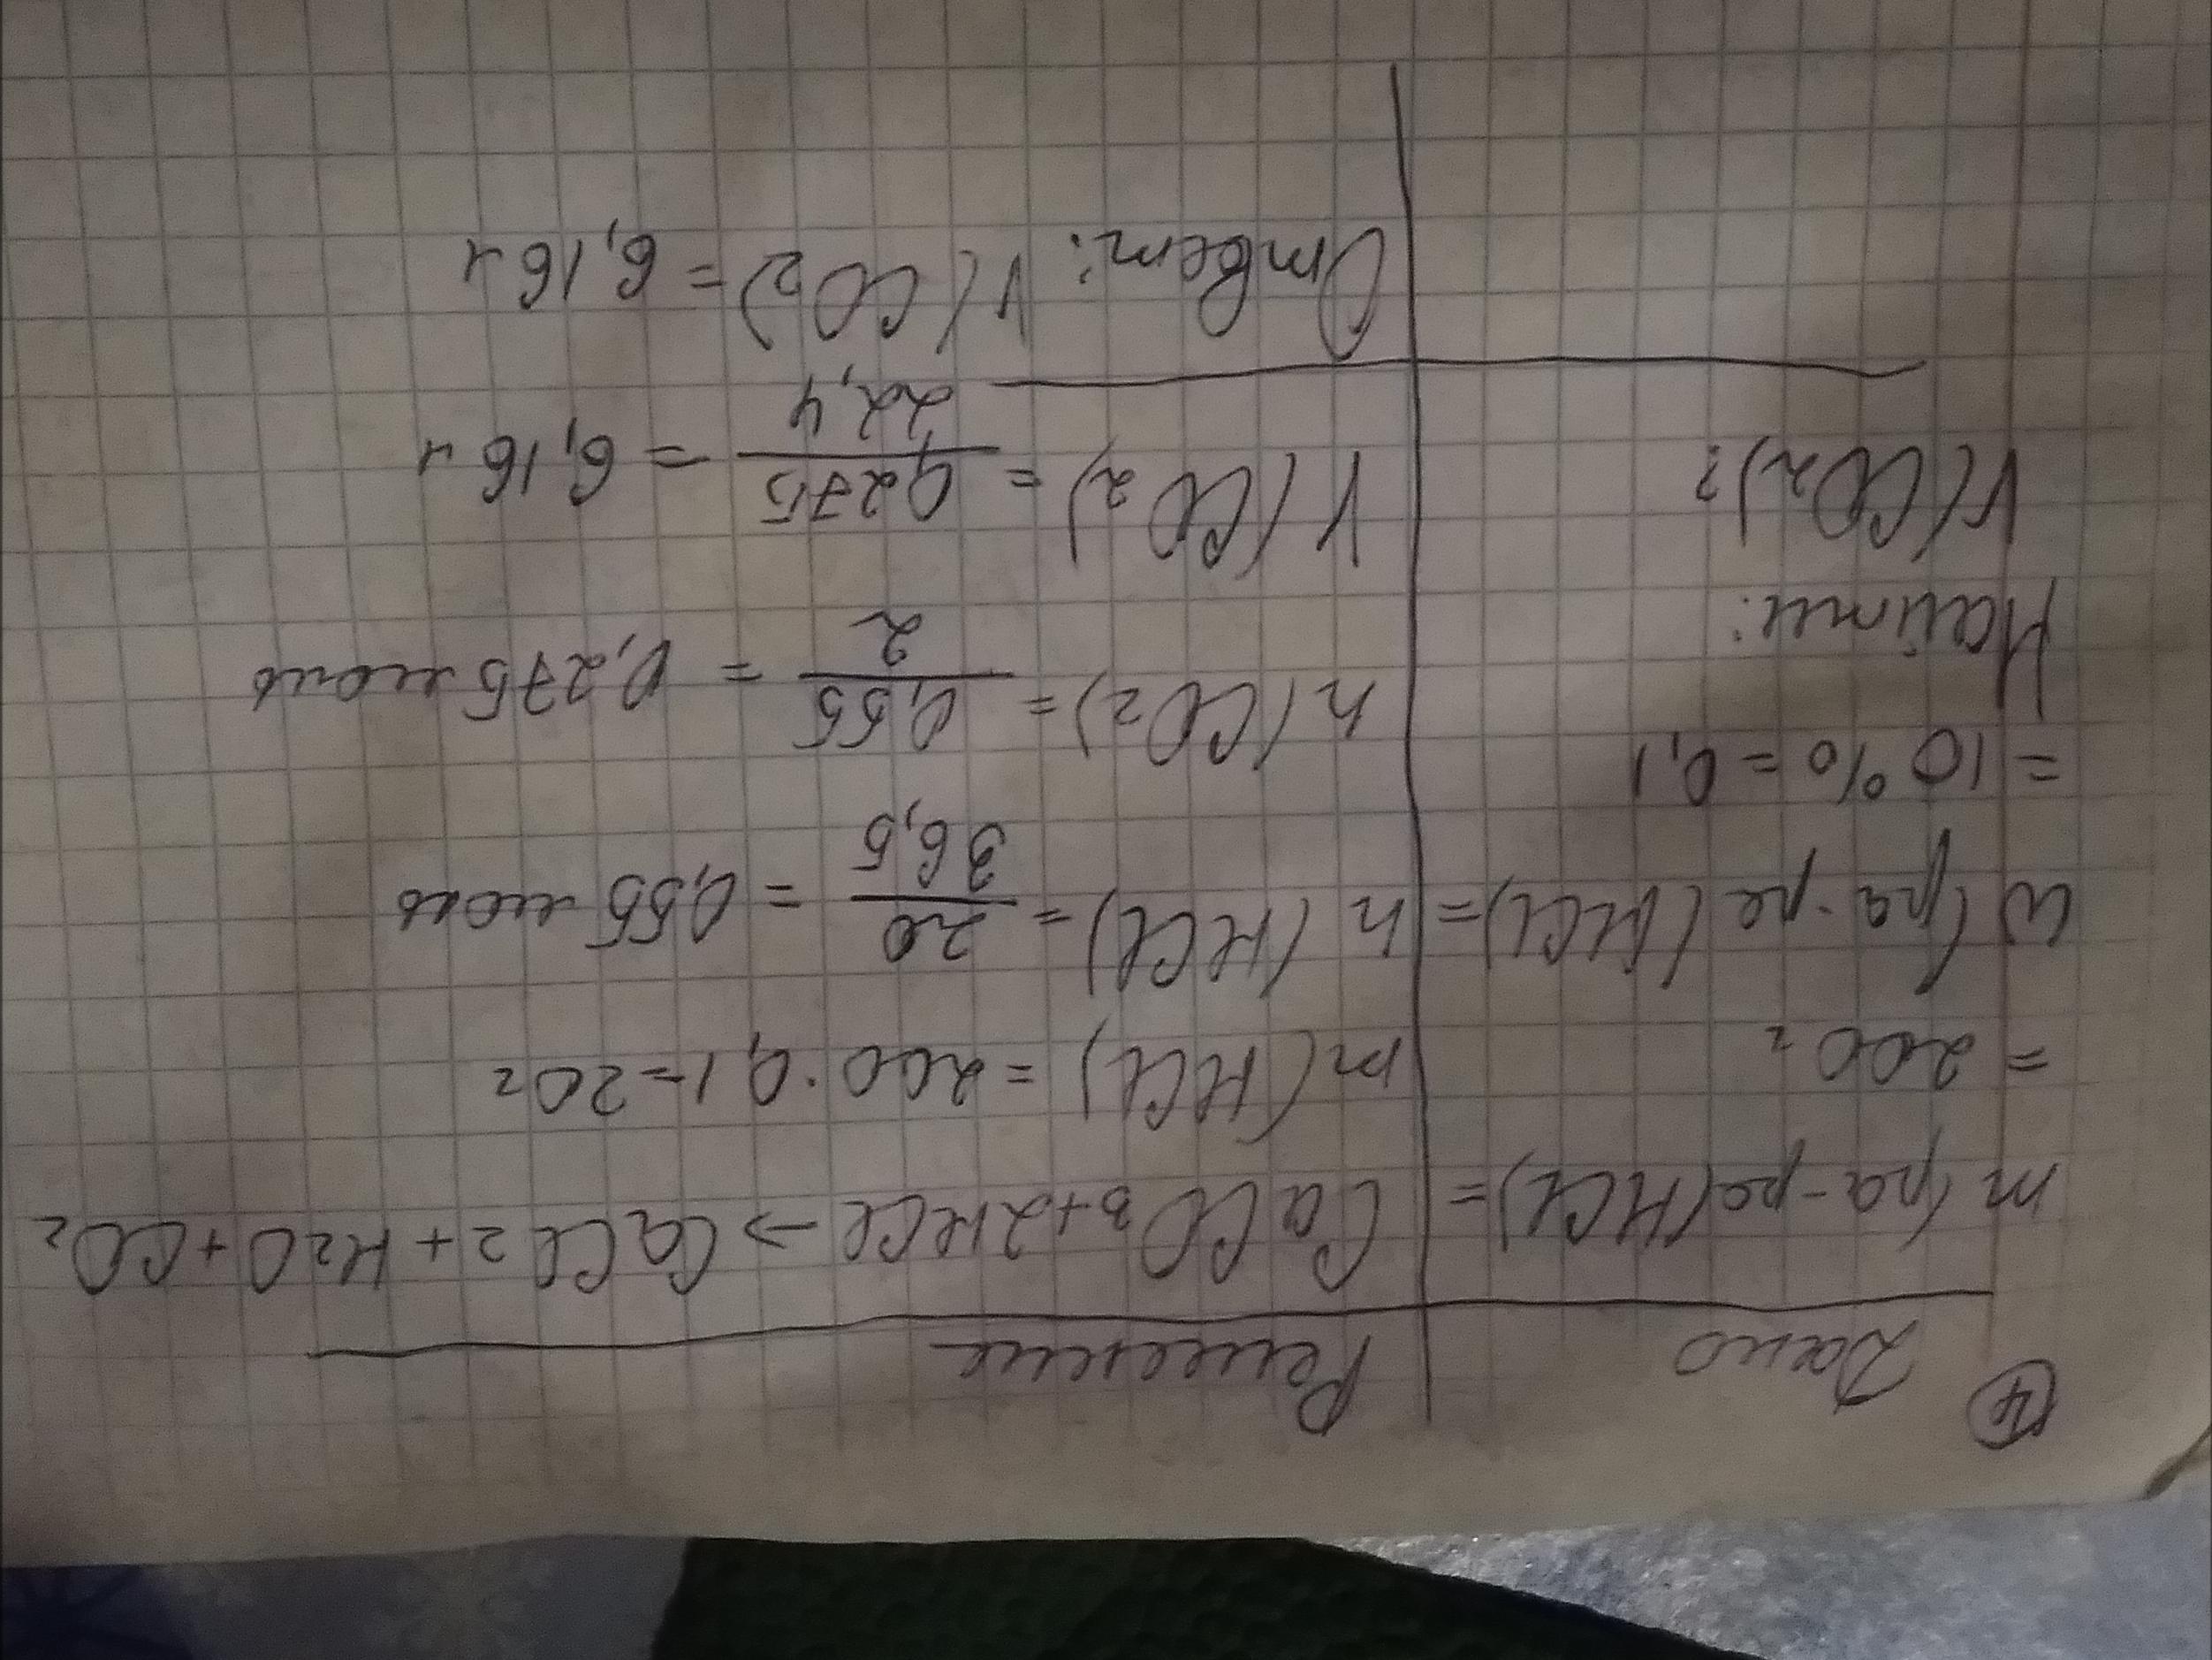 ④
Дано
m(ра-ра(HCl)=
=200г
ω(ра-ра(HCl)=
=10%=0,1
Найти:
V(CO2)?
Решение
CaCO3+2HCl→CaCl2+H2O+CO2
m(HCl)=200·0,1=20г
n(HCl)=20/36,5=0,55моль
n(CO2)=0,55/2=0,275моль
V(CO2)=0,275/22,4=6,16л
Ответ: V(CO2)=6,16л